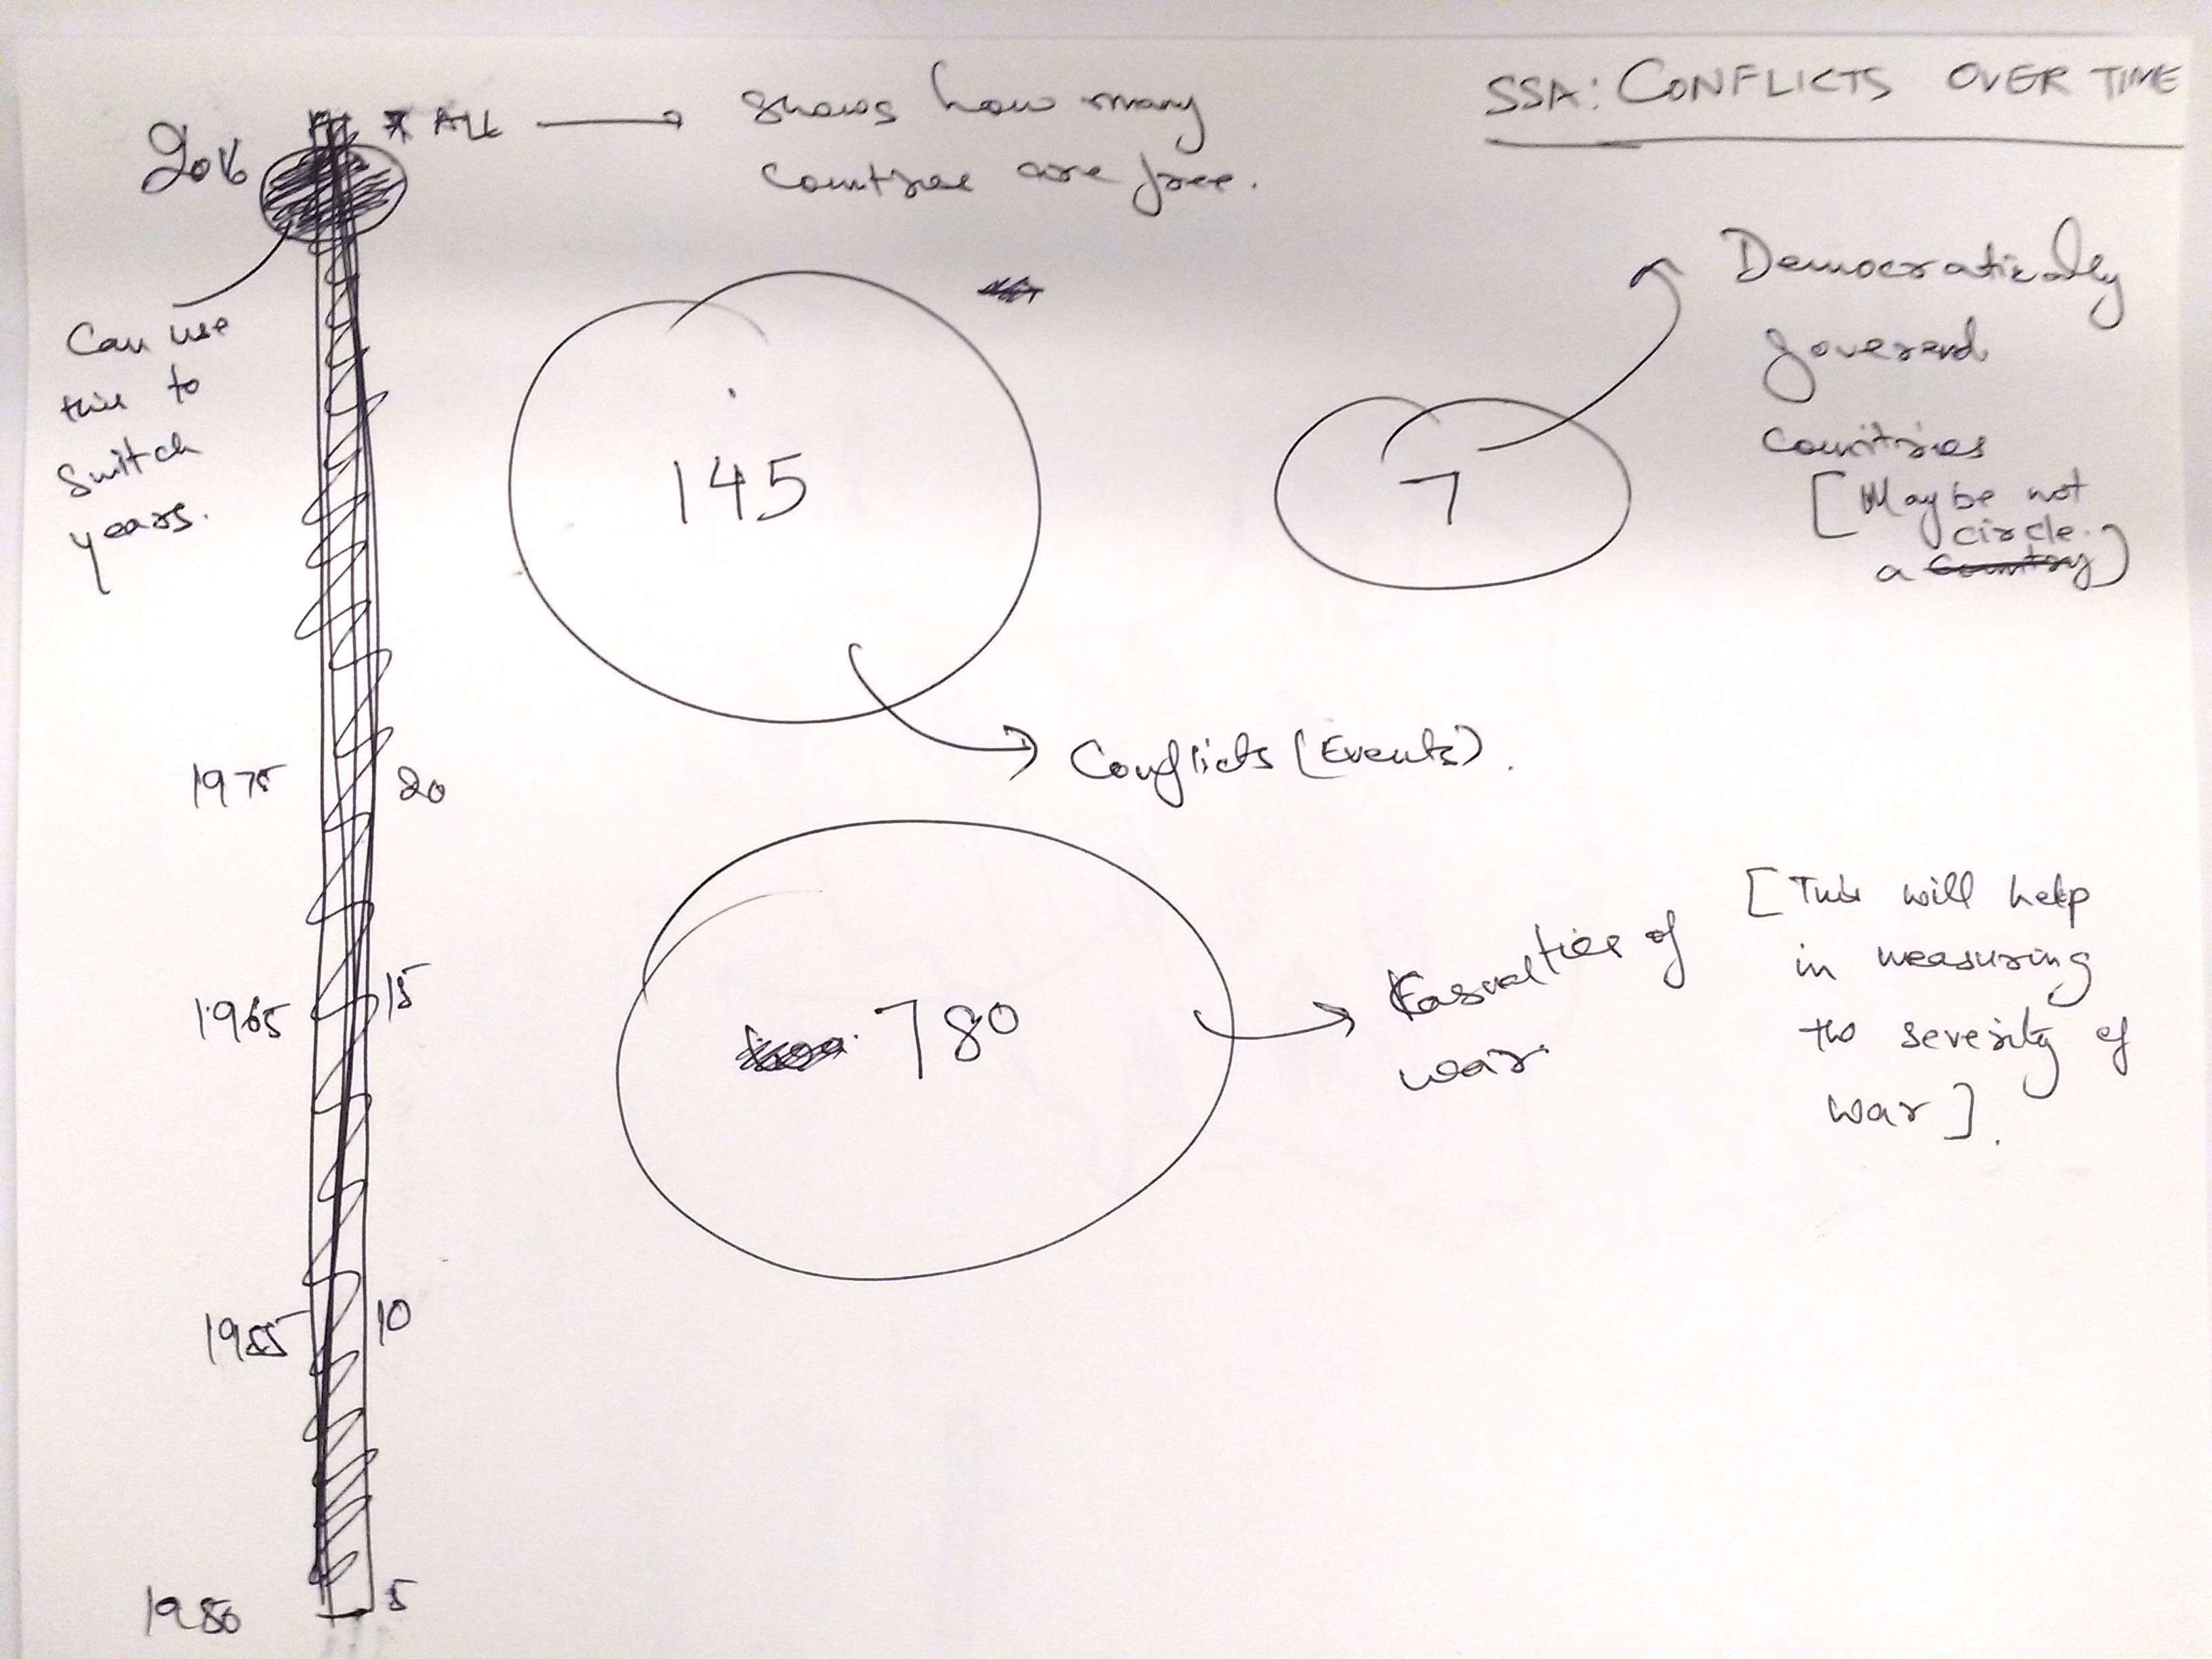 SSA: CONFLICTS OVER TIME
2016
* ALL
shows how many
countries are free.
Can use
this to
switch
years.
145
7
Democratically
governed
countries
[Maybe not
circle.
a country)
Conflicts (Events).
1975
20
780
Casualties of
war.
[This will help
in measuring
the severity of
war].
1965
15
1955
10
1950
5